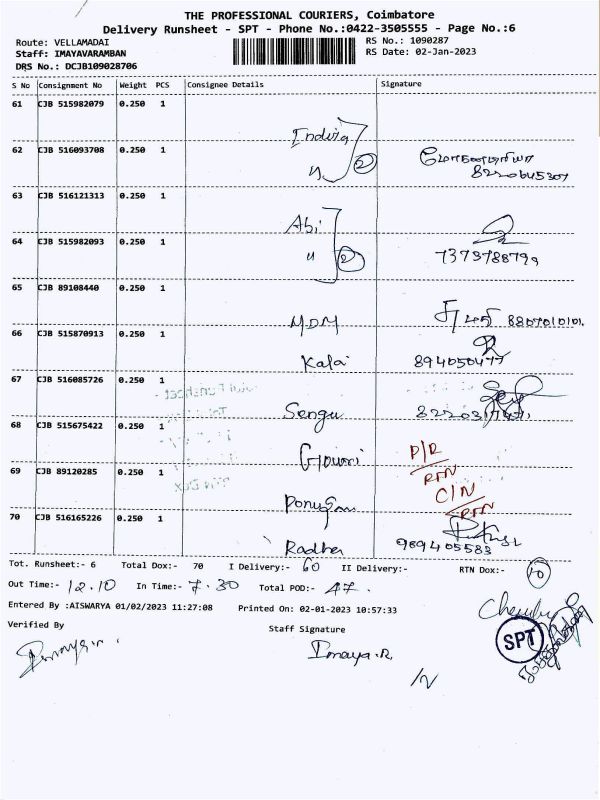 THE PROFESSIONAL COURIERS, Coimbatore
Delivery Runsheet - SPT - Phone No.:0422-3505555 - Page No.:6
Route: VELLAMADAI
Staff: IMAYAVARAMBAN
DRS No.: DCJB109028706
RS No.: 1090287
RS Date: 02-Jan-2023
S No Consignment No Weight PCS Consignee Details Signature
61 CJB 515982079 0.250 1 Indira
62 CJB 516093708 0.250 1 " 2 8220645307
63 CJB 516121313 0.250 1 Abi
64 CJB 515982093 0.250 1 " 2 7373788799
65 CJB 89108440 0.250 1 MDM 8807010101.
66 CJB 515870913 0.250 1 Kala 894050477
67 CJB 516085726 0.250 1 Sengu
68 CJB 515675422 0.250 1 Gowri D/R RTN
69 CJB 89120285 0.250 1 C/N RTN
70 CJB 516165226 0.250 1 Radha 9894405583
Tot. Runsheet:- 6 Total Dox:- 70 I Delivery:- 60 II Delivery:- RTN Dox:- 10
Out Time:- 12.10 In Time:- 7.30 Total POD:- 47.
Entered By :AISWARYA 01/02/2023 11:27:08 Printed On: 02-01-2023 10:57:33
Verified By Staff Signature
Imaya.R
SPT